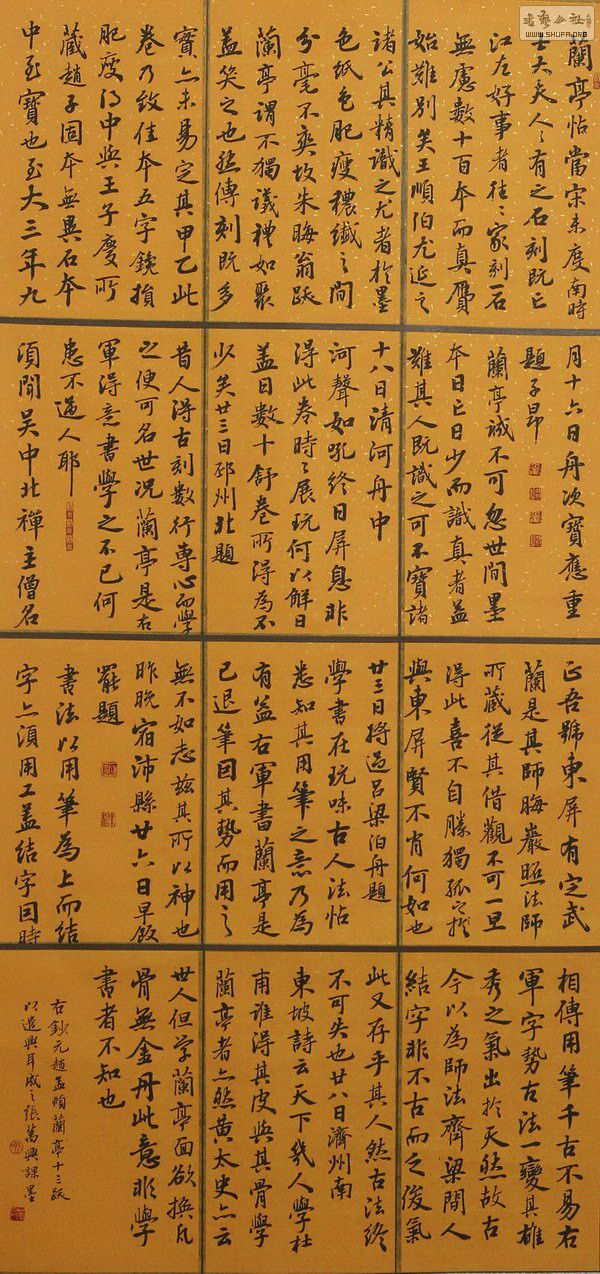 蘭亭帖當宋未度南時
士大夫人〻有之石刻既亡
江左好事者往〻家刻一石
無慮數十百本而真贋
始難別矣王順伯尤延之
諸公其精識之尤者於墨
色紙色肥瘦穠纖之間
分毫不爽故朱晦翁跋
蘭亭謂不獨議禮如聚
蓋笑之也然傳刻既多
實亦未易定其甲乙此
卷乃致佳本五字鐫損
肥瘦得中與王子慶所
藏趙子固本無異石本
中至寶也至大三年九
月十六日舟次寶應重
題子昂
蘭亭誠不可忽世間墨
本日亡日少而識真者益
難其人既識之可不寶諸
十八日清河舟中
河聲如吼終日屏息非
得此卷時〻展玩何以解日
蓋日數十舒卷所得為不
少矣廿三日邳州北題
昔人得古刻數行專心而學
之便可名世況蘭亭是右
軍得意書學之不已何
患不過人耶
須聞吳中北禪主僧名
正吾號東屏有定武
蘭是其師晦巖照法師
所藏從其借觀不可一旦
得此喜不自勝獨孤之
與東屏賢不肖何如也
廿三日將過呂梁泊舟題
學書在玩味古人法帖
悉知其用筆之意乃為
有益右軍書蘭亭是
已退筆因其勢而用之
無不如志茲其所以神也
昨晚宿沛縣廿六日早飯
罷題
書法以用筆為上而結
字亦須用工蓋結字因時
相傳用筆千古不易右
軍字勢古法一變其雄
秀之氣出於天然故古
今以為師法齊梁間人
結字非不古而乏俊氣
此又存乎其人然古法終
不可失也廿八日濟州南
東坡詩云天下幾人學杜
甫誰得其皮與其骨學
蘭亭者亦然黄太史亦云
世人但学蘭亭面欲換凡
骨無金丹此意非學
書者不知也
右鈔元趙孟頫蘭亭十三跋
以遣興耳成之張萬興課墨
書藝公社
WWW.SHUFA.ORG